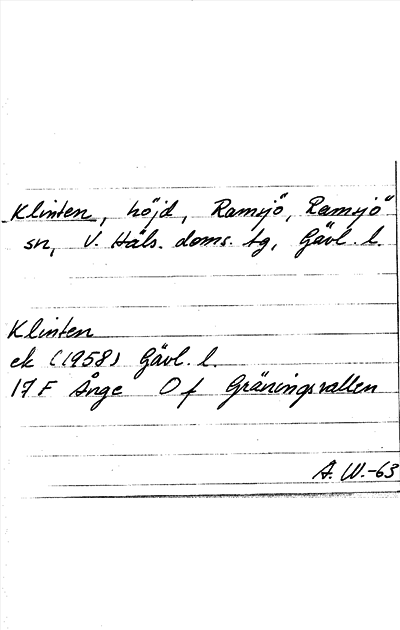 Klinten, höjd, Ramsjö, Ramsjö
sn, V. Häls. doms. tg, Gävl. l.
Klinten
ek (1958) Gävl. l.
17 F Ånge O f Gräningsvallen
A. W.-63